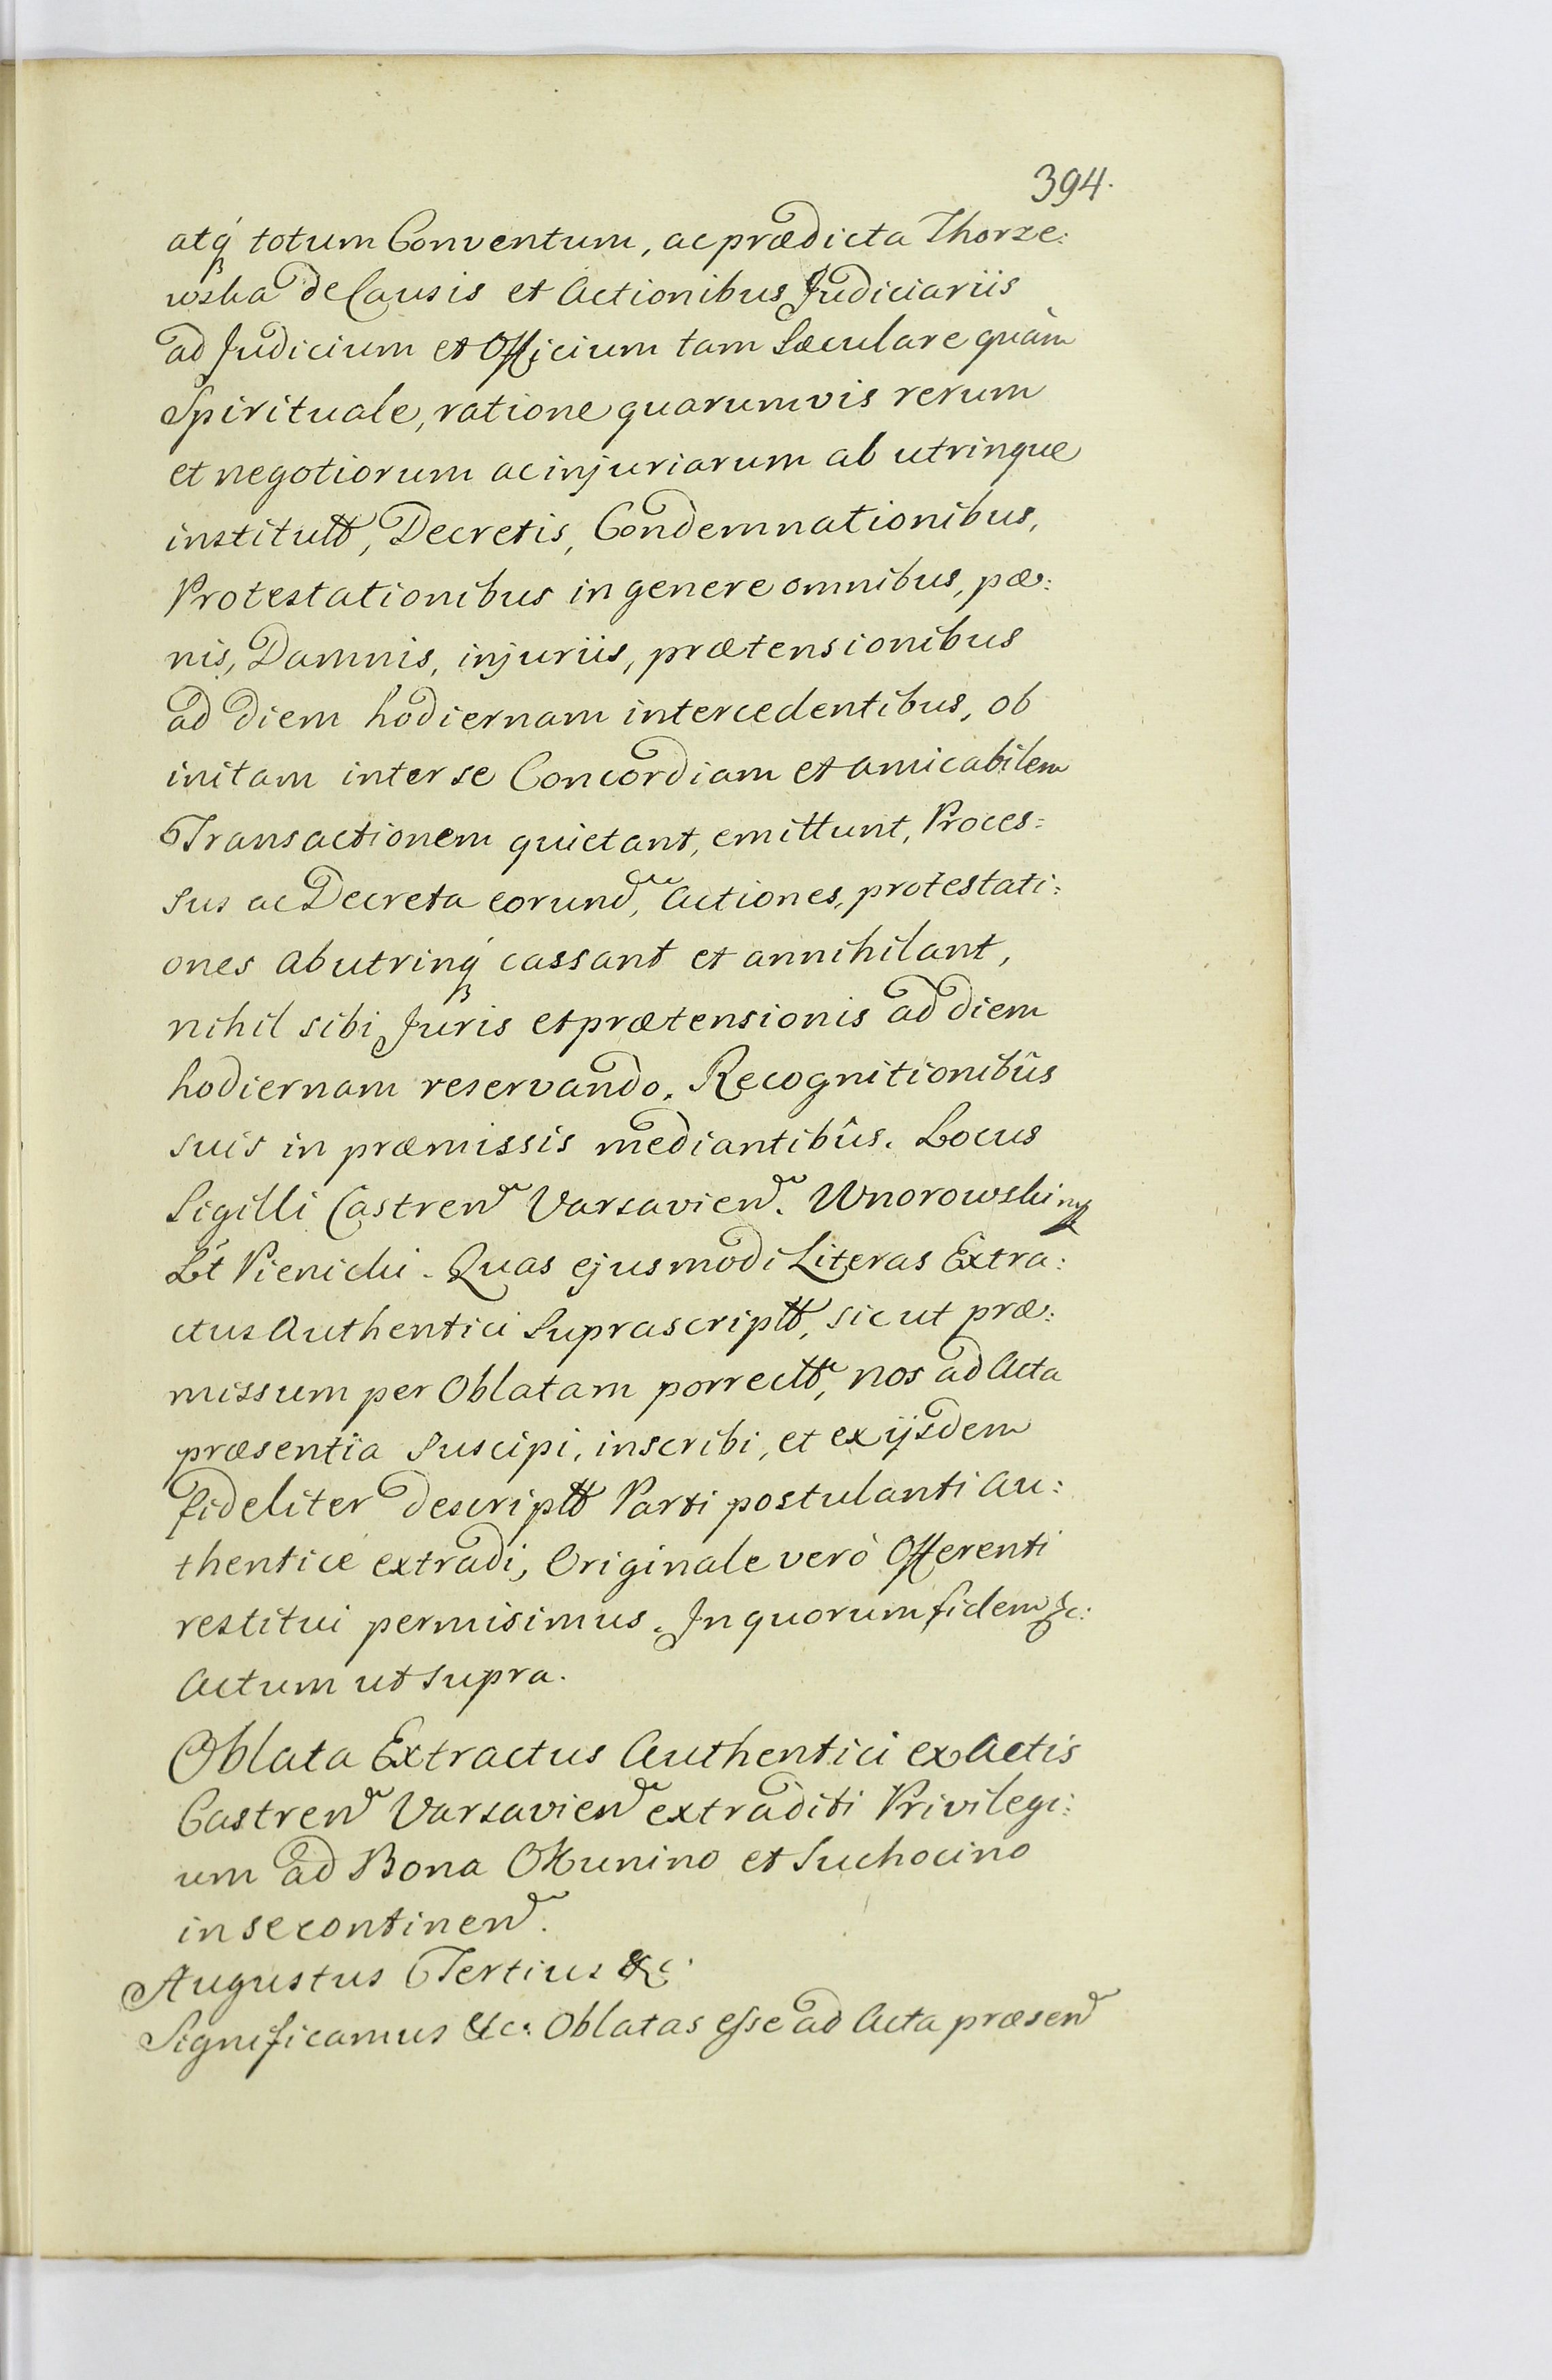 394.
atq́ totum Conventum, ac prædicta Thorze:
wska de Causis et Actionibus Judiciariis
ad Judicium et Officium tam Sæculare quàm
Spirituale, ratione quarumvis rerum
et negotiorum ac injuriarum ab utrinque
institutt, Decretis, Condemnationibus,
Protestationibus in genere omnibus, pæ:
nis, Damnis, injuriis, prætensionibus
ad diem hodiernam intercedentibus, ob
initam inter se Concordiam et amicabilem
Transactionem quietant, emittunt, Proces=
sus ac Decreta eorund, Actiones, protestati:
ones ab utrinq́ cassant et annihilant,
nihil sibi Juris et prætensionis ad diem
hodiernam reservando. Recognitionibûs
suis in præmissis mediantibûs. Locus
Sigilli Castren Varsavien. Wnorowski
Lt Pienicki. Quas ejusmodi Literas Extra:
ctus Authentici Suprascriptt, sic ut præ:
missum per Oblatam porrectt, nos ad Acta
præsentia Suscipi, inscribi, et ex ijsdem
fideliter descriptt Parti postulanti Au:
thentice extradi, Originale verò Offerenti
restitui permisimus. In quorum fidem &c:
Actum ut supra.
Oblata Extractus Authentici ex Actis
Castren Varsavien extraditi Privilegi:
um ad Bona Okunino et Suchocino
in se continen.
Augustus Tertius &c:
Significamus &c: Oblatas esse ad Acta præsen